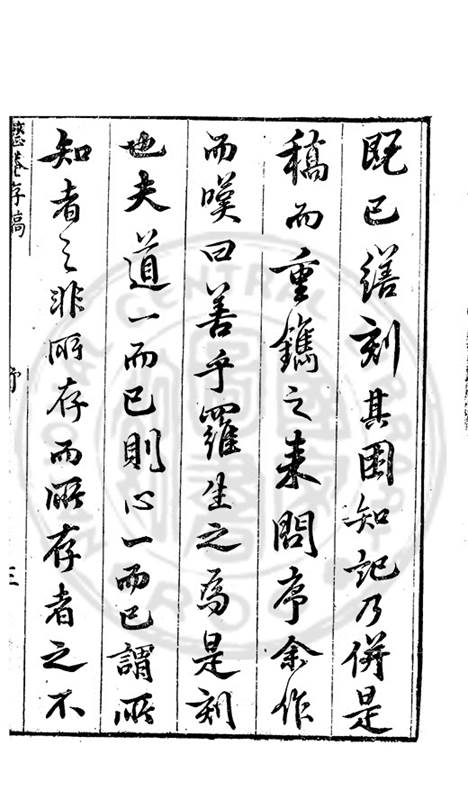 既已繕刻其困知記乃併是
稿而重鐫之來問序余作
而嘆曰善乎羅生之為是刻
也夫道一而已則心一而已謂所
知者之非所存而所存者之不
整菴存稿
序
三